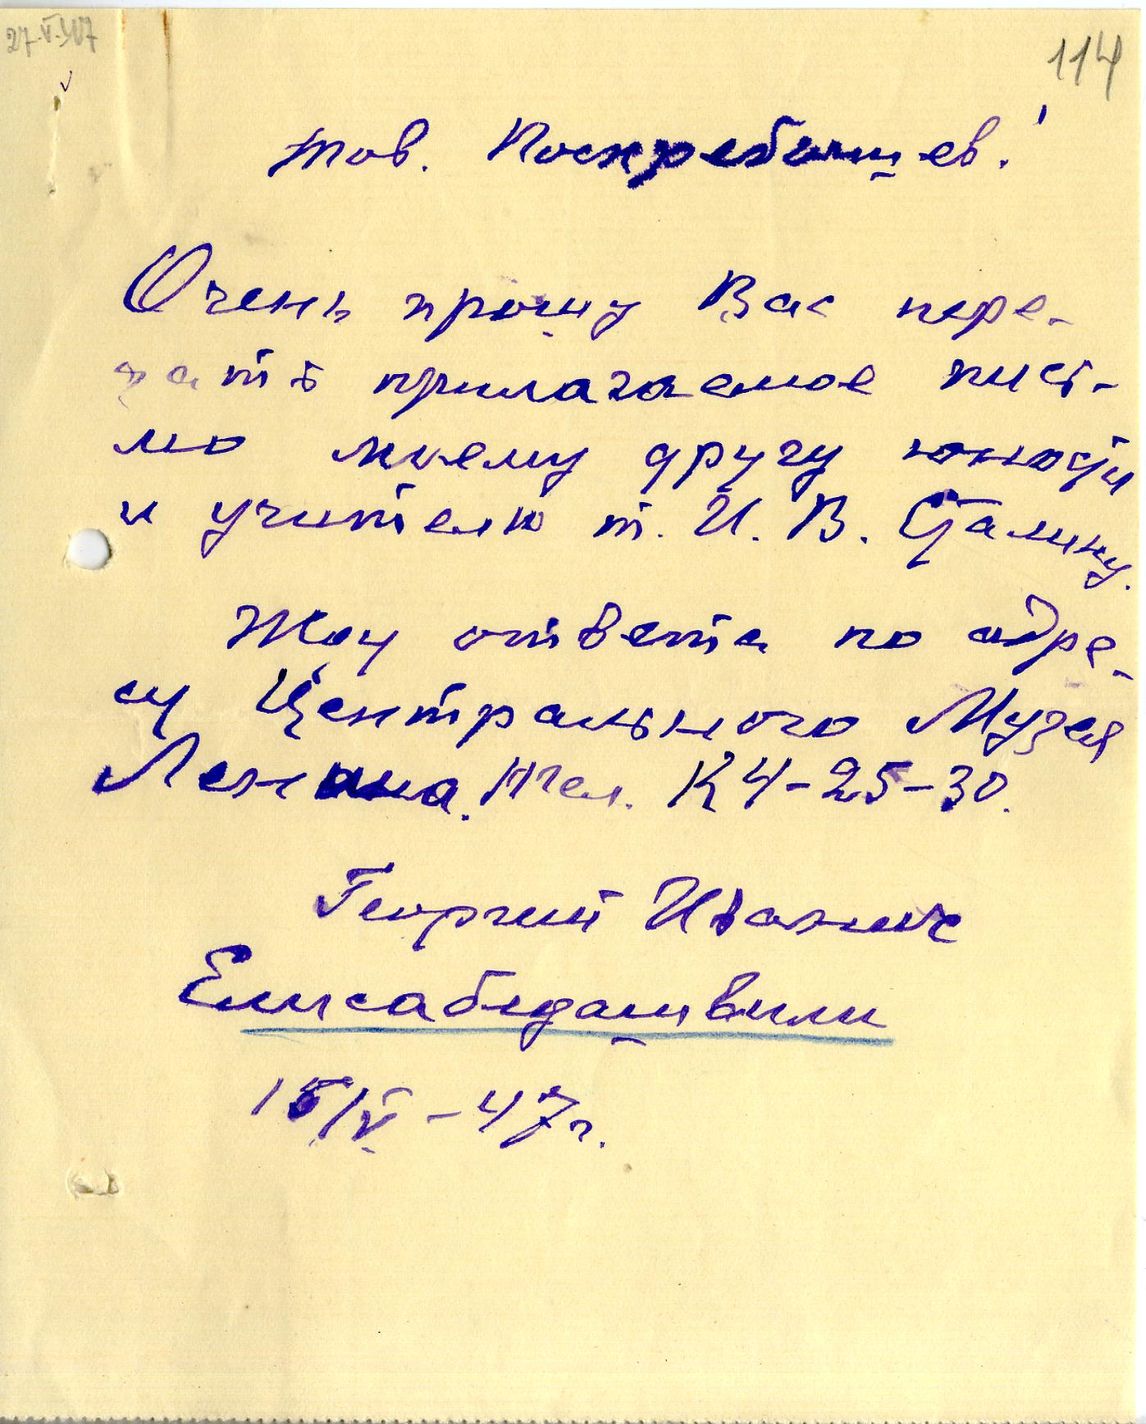 114
тов. Поскребышев!
Очень прошу Вас пере-
дать прилагаемое пись-
мо моему другу юности
и учителю т. И. В. Сталину.
Жду ответа по адре-
су Центрального Музея
Ленина. Тел. К4-25-30.
Георгий Иванич
Елисабедашвили
15/V-47г.